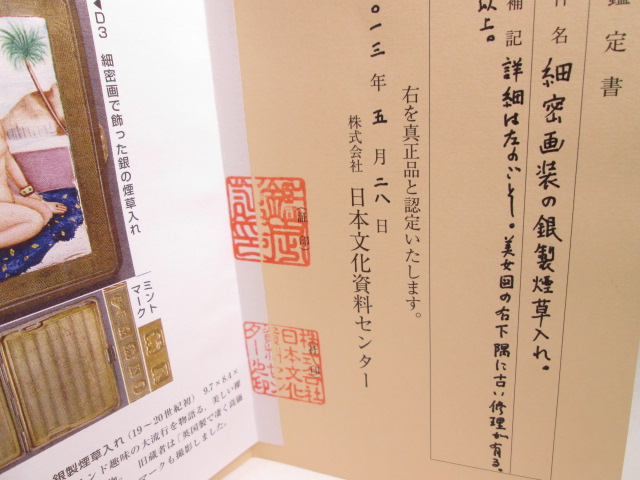 鑑定書
件名 細密画装の銀製煙草入れ。
補記 詳細は左のごとし。美女図の右下隅に古い修理が有る。
以上。
右を真正品と認定いたします。
〇一三年五月二八日
株式会社 日本文化資料センター
証印
社印
株式会社
日本文化
資料セン
ター之印
◀D3 細密画で飾った銀の煙草入れ
ミント
マーク
銀製煙草入れ(19～20世紀初) 9.7×8.4×
ンド趣味の大流行を物語る、美しい揮
旧蔵者は「英国製で凄く高価
マークも撮影しました。